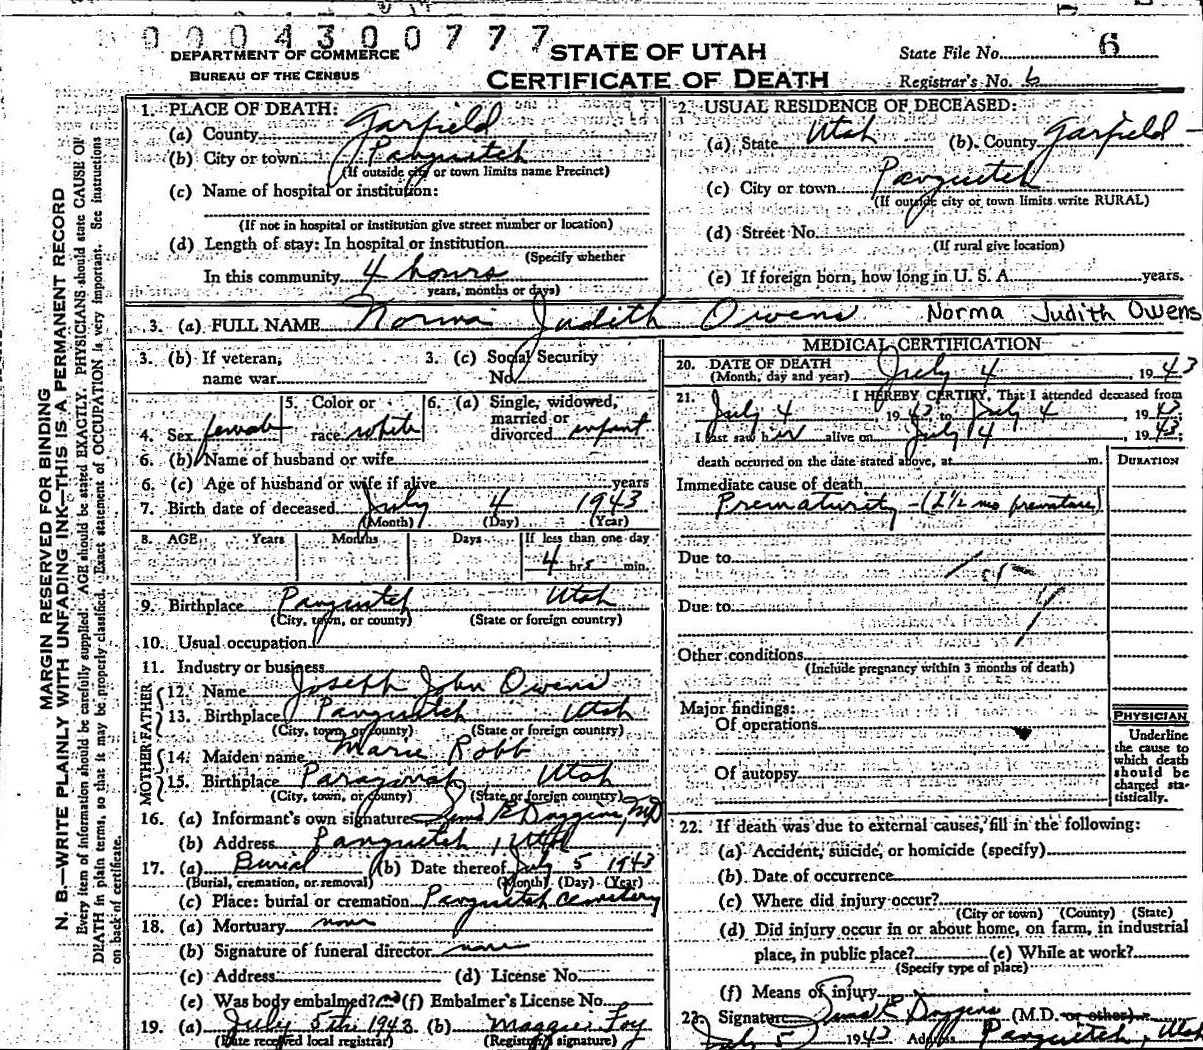 0 0 0 4 3 0 0 7 7 7
DEPARTMENT OF COMMERCE
BUREAU OF THE CENSUS
STATE OF UTAH
CERTIFICATE OF DEATH
State File No. 6
Registrar's No. 6
MARGIN RESERVED FOR BINDING
N. B.—WRITE PLAINLY WITH UNFADING INK—THIS IS A PERMANENT RECORD
Every item of information should be carefully supplied. AGE should be stated EXACTLY. PHYSICIANS should state CAUSE OF
DEATH in plain terms, so that it may be properly classified. Exact statement of OCCUPATION is very important. See instructions
on back of certificate.
1. PLACE OF DEATH:
(a) County Garfield
(b) City or town Panguitch
(If outside city or town limits name Precinct)
(c) Name of hospital or institution:
(If not in hospital or institution give street number or location)
(d) Length of stay: In hospital or institution
(Specify whether
In this community 4 hours
years, months or days)
2. USUAL RESIDENCE OF DECEASED:
(a) State Utah (b) County Garfield
(c) City or town Panguitch
(If outside city or town limits write RURAL)
(d) Street No.
(If rural give location)
(e) If foreign born, how long in U. S. A. years.
3. (a) FULL NAME Norma Judith Owens Norma Judith Owens
3. (b) If veteran, name war
3. (c) Social Security No.
4. Sex female
5. Color or race white
6. (a) Single, widowed, married or divorced infant
6. (b) Name of husband or wife
6. (c) Age of husband or wife if alive years
7. Birth date of deceased July 4 1943
(Month) (Day) (Year)
8. AGE Years Months Days If less than one day
4 hrs min.
9. Birthplace Panguitch Utah
(City, town, or county) (State or foreign country)
10. Usual occupation
11. Industry or business
FATHER
12. Name Joseph John Owens
13. Birthplace Panguitch Utah
(City, town or county) (State or foreign country)
MOTHER
14. Maiden name Marie Robb
15. Birthplace Paragonah Utah
(City, town, or county) (State or foreign country)
16. (a) Informant's own signature Duggins, MD
(b) Address Panguitch, Utah
17. (a) Burial (b) Date thereof July 5 1943
(Burial, cremation, or removal) (Month) (Day) (Year)
(c) Place: burial or cremation Panguitch Cemetery
18. (a) Mortuary none
(b) Signature of funeral director none
(c) Address (d) License No.
(e) Was body embalmed? no (f) Embalmer's License No.
19. (a) July 5th 1943 (b) Maggie Foy
(Date received local registrar) (Registrar's signature)
MEDICAL CERTIFICATION
20. DATE OF DEATH July 4, 1943
(Month, day and year)
21. I HEREBY CERTIFY, That I attended deceased from
July 4 1943 to July 4, 1943
I last saw her alive on July 4, 1943;
death occurred on the date stated above, at m.
DURATION
Immediate cause of death
Prematurity - (2½ mo premature)
Due to
Due to
Other conditions
(Include pregnancy within 3 months of death)
Major findings:
Of operations
Of autopsy
PHYSICIAN
Underline
the cause to
which death
should be
charged sta-
tistically.
22. If death was due to external causes, fill in the following:
(a) Accident, suicide, or homicide (specify)
(b) Date of occurrence
(c) Where did injury occur?
(City or town) (County) (State)
(d) Did injury occur in or about home, on farm, in industrial
place, in public place? (e) While at work?
(Specify type of place)
(f) Means of injury
23. Signature Duggins (M.D. or other)
July 5 1943 Address Panguitch, Utah